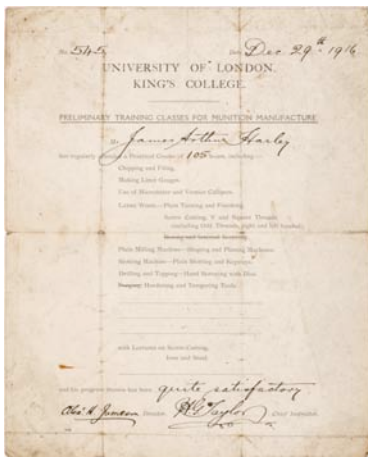 No. 545 Date Dec. 29th 1916
UNIVERSITY OF LONDON.
KING'S COLLEGE.
PRELIMINARY TRAINING CLASSES FOR MUNITION MANUFACTURE
Mr James Arthur Harley
has regularly attended a Practical Course of 105 hours, including:—
Chipping and Filing.
Making Limit Gauges.
Use of Micrometer and Vernier Calipers.
Lathe Work—Plain Turning and Finishing.
Screw Cutting, V and Square Threads
(including Odd Threads, right and left handed).
Plain Milling Machine—Shaping and Planing Machines.
Slotting Machine—Plain Slotting and Keyways.
Drilling and Tapping—Hand Screwing with Dies.
Hardening and Tempering Tools.
with Lectures on Screw-Cutting,
Iron and Steel.
and his progress therein has been quite satisfactory
Alex H. Jameson Director. H G Taylor Chief Instructor.